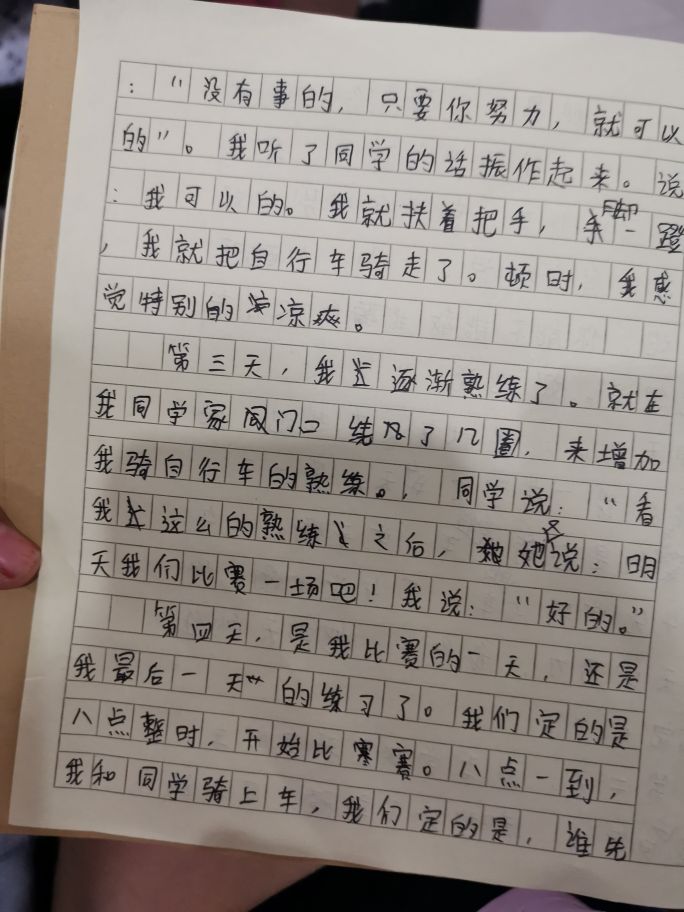 ：“没有事的，只要你努力，就可以
的”。我听了同学的话振作起来。说
：我可以的。我就扶着把手，脚一蹬
，我就把自行车骑走了。顿时，我感
觉特别的凉爽。
第三天，我逐渐熟练了。就在
我同学家门口练了几圈，来增加
我骑自行车的熟练。，同学说：“看
我这么的熟练之后，她又说：明
天我们比赛一场吧！我说：“好的。”
第四天，是我比赛的一天，还是
我最后一天的练习了。我们定的是
八点整时，开始比赛。八点一到，
我和同学骑上车，我们定的是，谁先